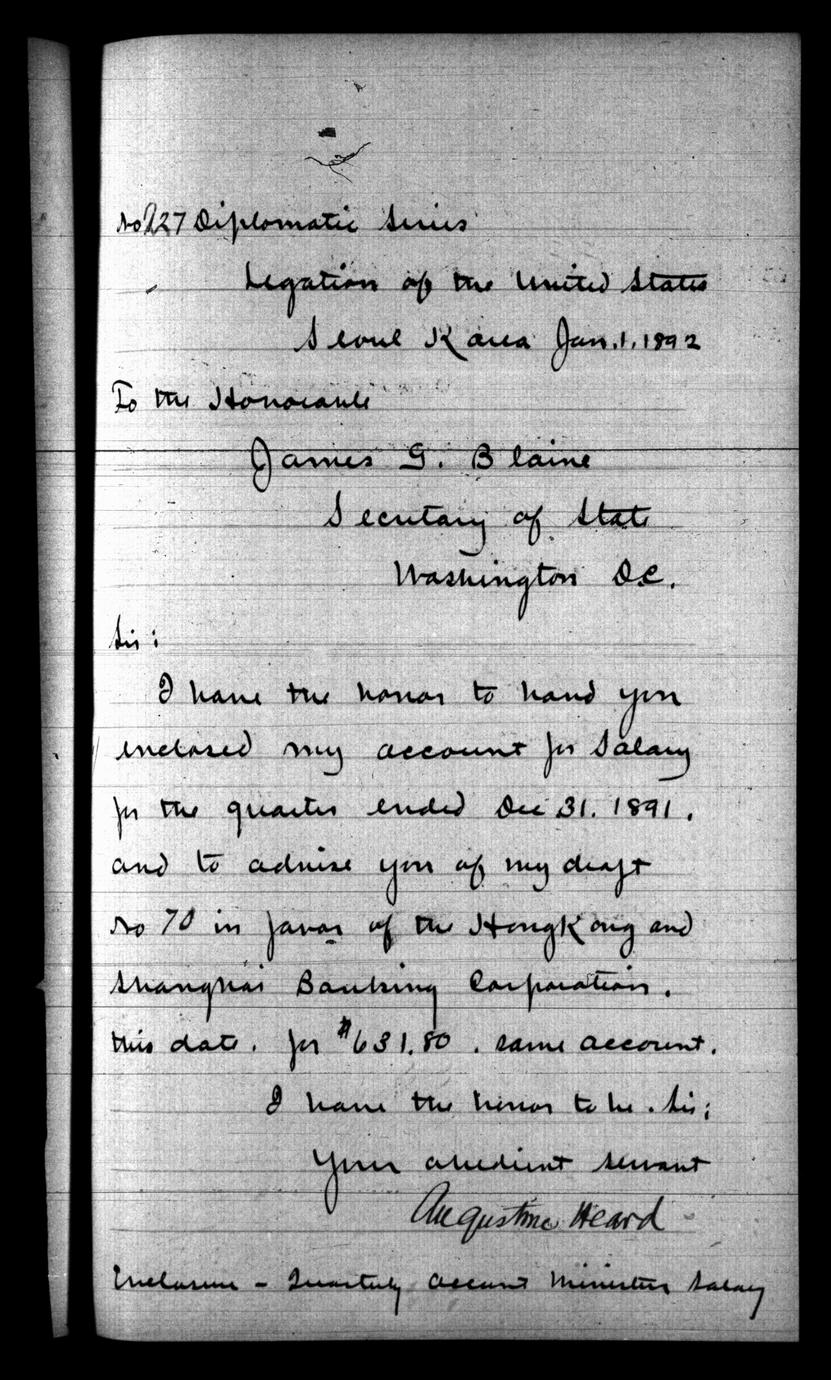 No 227 Diplomatic Series
Legation of the United States
Seoul Korea Jan. 1. 1892
To the Honorable
James G. Blaine
Secretary of State
Washington D.C.
Sir:
I have the honor to hand you
enclosed my account for Salary
for the quarter ended Dec 31. 1891.
and to advise you of my draft
No 70 in favor of the HongKong and
Shanghai Banking Corporation.
this date. for $631.80. same account.
I have the honor to be. Sir;
Your obedient servant
Augustine Heard
Enclosure - Quarterly account Ministers Salary